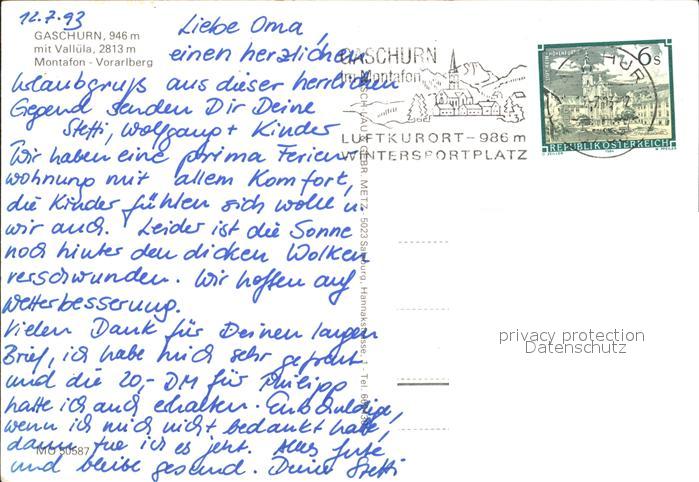 12.7.93
GASCHURN, 946 m
mit Vallüla, 2813 m
Montafon - Vorarlberg
Liebe Oma,
einen herzlichen
Urlaubgruß aus dieser herrlichen
Gegend senden Dir Deine
Steffi, Wolfgang + Kinder
Wir haben eine prima Ferien-
wohnung mit allem Komfort,
die Kinder fühlen sich wohl u.
wir auch. Leider ist die Sonne
noch hinter den dicken Wolken
verschwunden. Wir hoffen auf
Wetterbesserung.
Vielen Dank für Deinen langen
Brief, ich habe mich sehr gefreut
und die 20,- DM für Philipp
hatte ich auch erhalten. Entschuldige,
wenn ich mich nicht bedankt habe,
dann tue ich es jetzt. Alles Gute
und bleibe gesund. Deine Steffi
MO 50587
GASCHURN
im Montafon
LUFTKURORT - 986 m
WINTERSPORTPLATZ
6 S
REPUBLIK ÖSTERREICH
GEBR. METZ, 5023 Salzburg, Hannakstrasse
privacy protection
Datenschutz